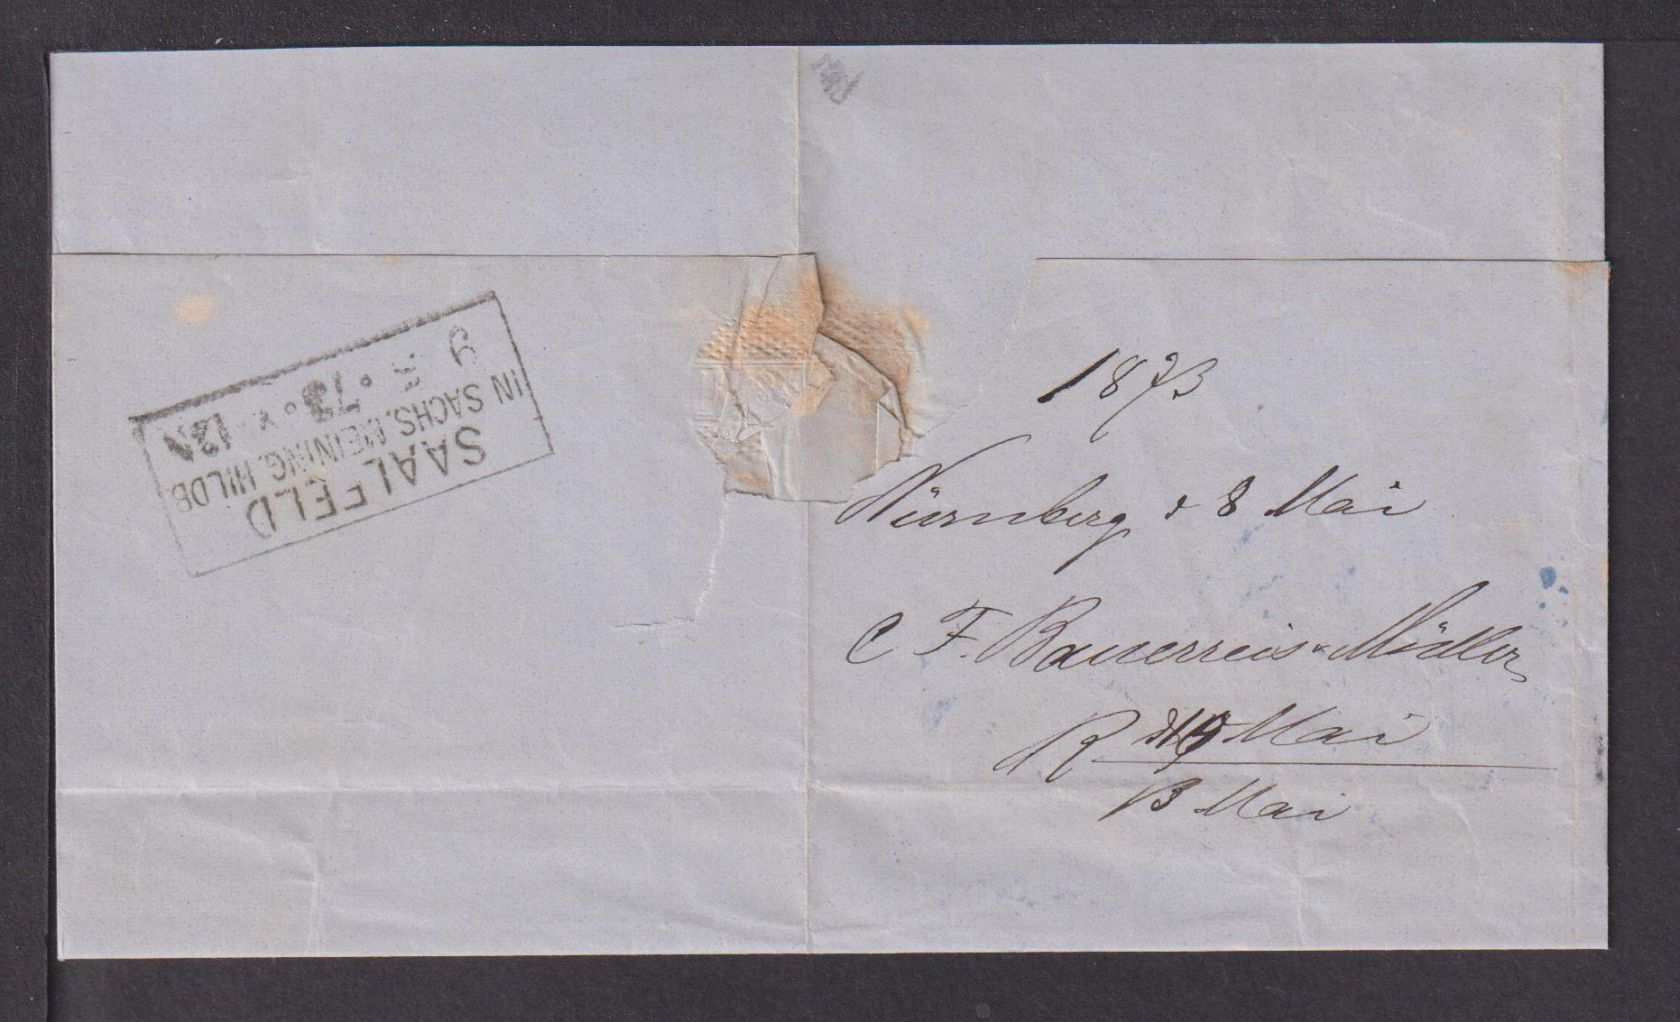 SAALFELD
IN SACHS. MEINING. HILDB.
9 5 73 12 N
1873
Nürnberg d 8 Mai
C F. Bauerreis & Mödler
R Mai
13 Mai